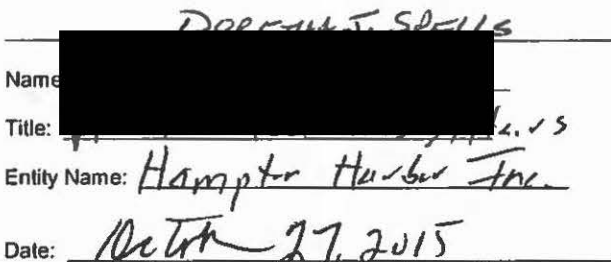 J. Spells
Name
Title:
Entity Name: Hampton Harbor Inc.
Date: October 27, 2015